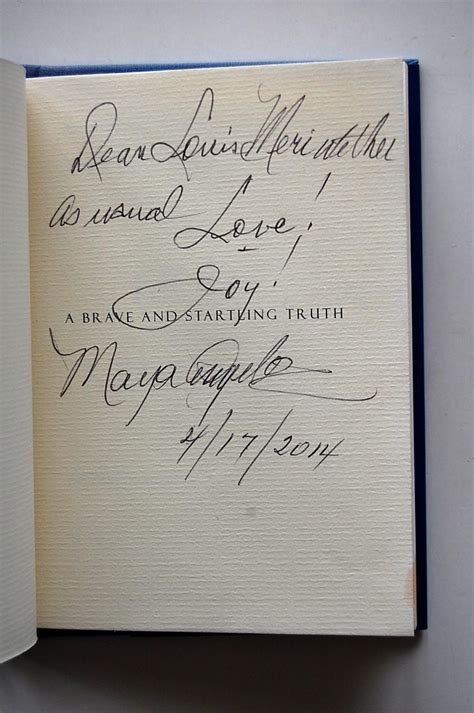 Dear Louis Meriwether
as usual Love!
Joy!
A BRAVE AND STARTLING TRUTH
Maya Angelou
4/17/2014